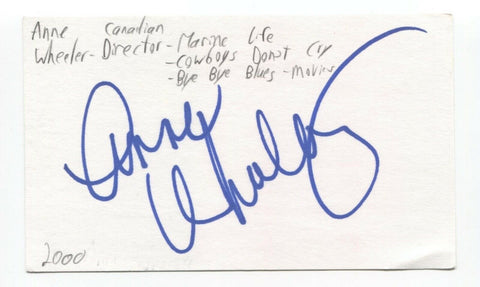 Anne Canadian
Wheeler - Director - Marine Life
- Cowboys Donot Cry
- Bye Bye Blues - movies
Anne Wheeler
2000